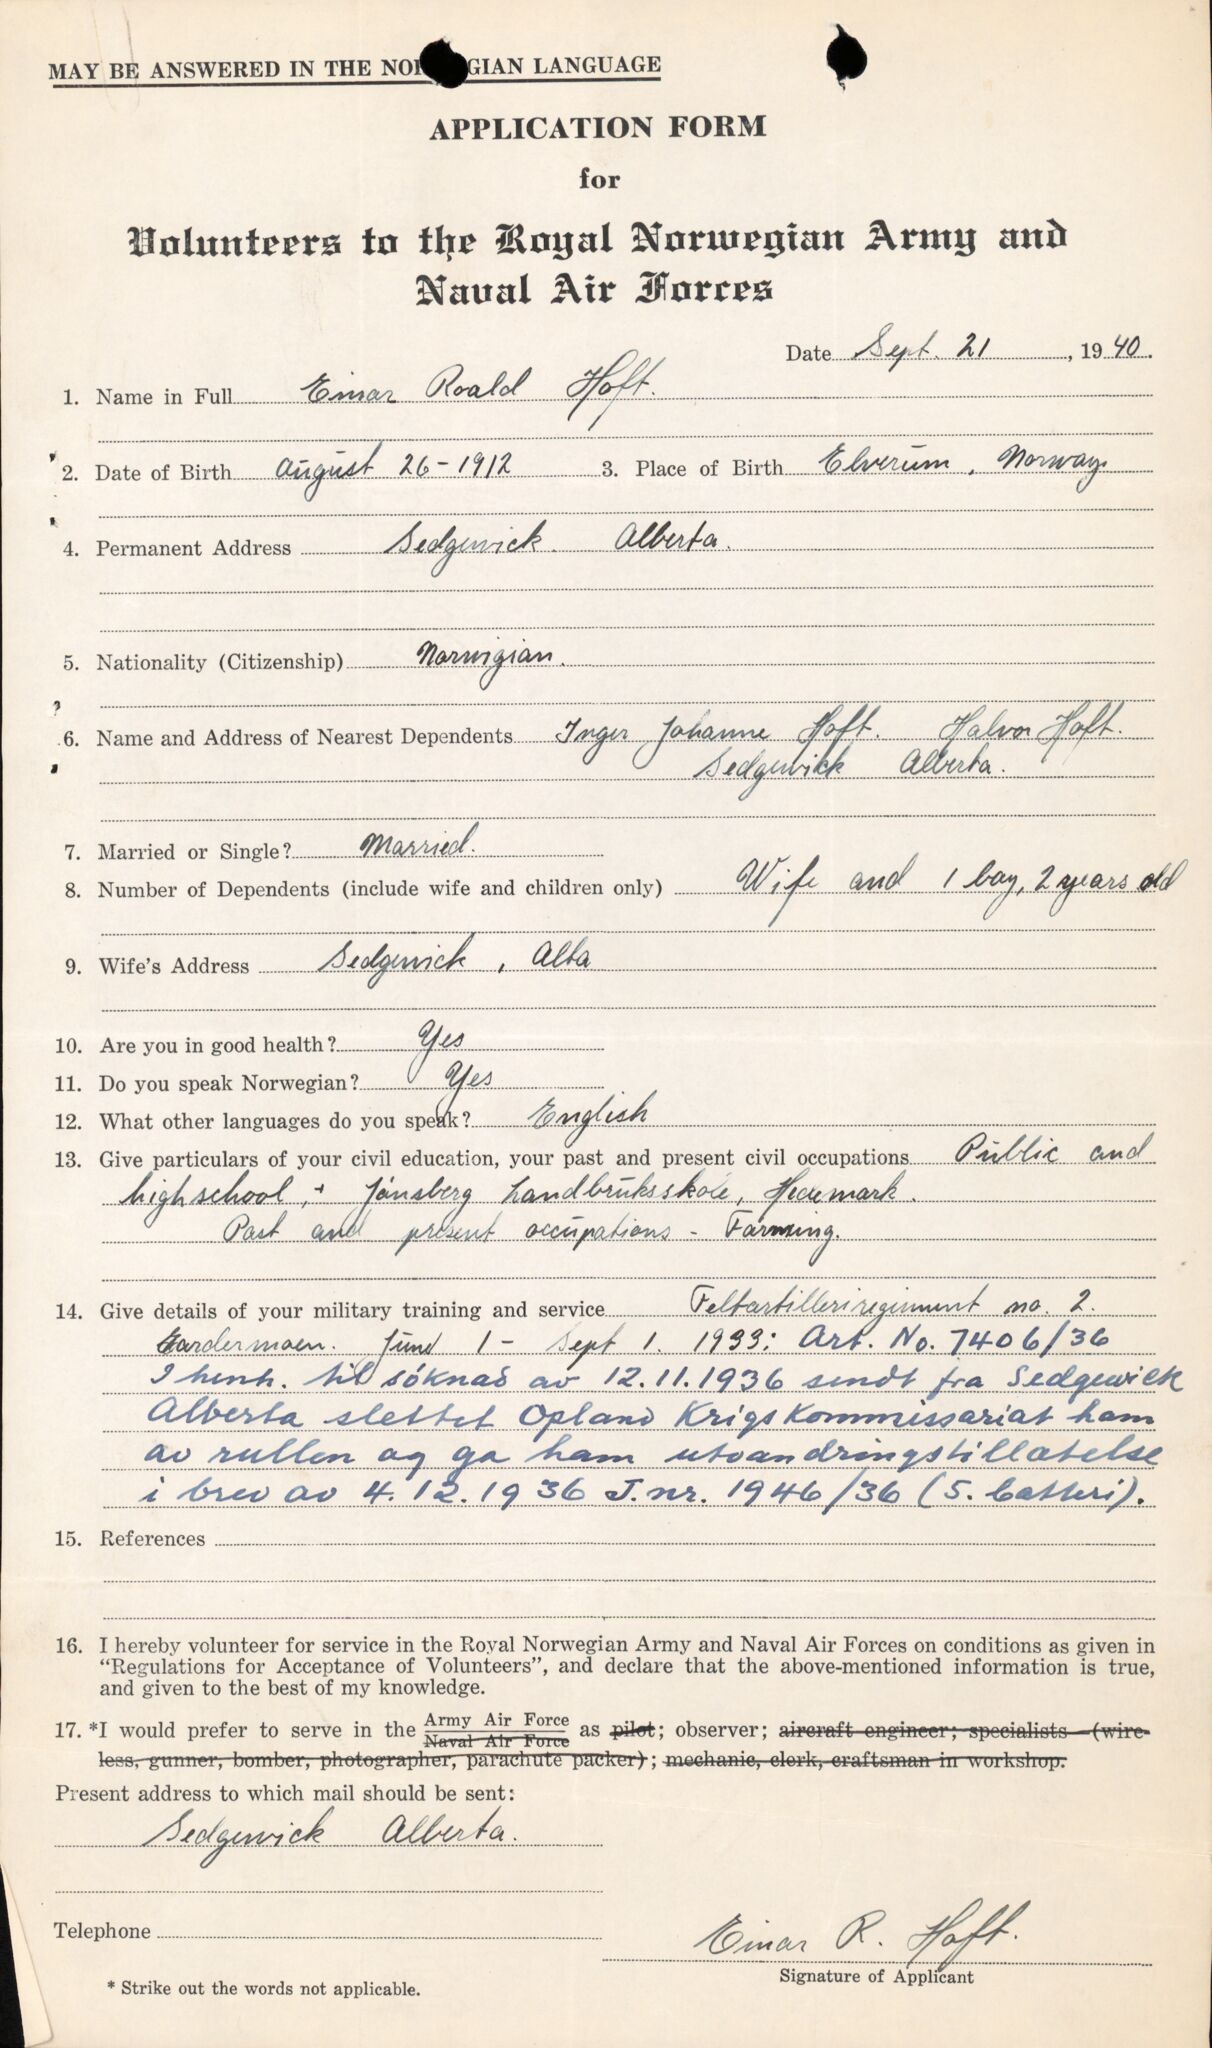 MAY BE ANSWERED IN THE NORWEGIAN LANGUAGE
APPLICATION FORM
for
Volunteers to the Royal Norwegian Army and
Naval Air Forces
Date Sept. 21, 1940.
1. Name in Full Einar Roald Hoft.
2. Date of Birth August 26 - 1912 3. Place of Birth Elverum, Norway
4. Permanent Address Sedgewick. Alberta.
5. Nationality (Citizenship) Norwigian.
6. Name and Address of Nearest Dependents Inger Johanne Hoft. Halvor Hoft.
Sedgewick Alberta.
7. Married or Single? Married.
8. Number of Dependents (include wife and children only) Wife and 1 boy, 2 years old
9. Wife's Address Sedgewick, Alta
10. Are you in good health? Yes
11. Do you speak Norwegian? Yes
12. What other languages do you speak? English
13. Give particulars of your civil education, your past and present civil occupations Public and
highschool, + Jønsberg Landbruksskole, Hedemark.
Past and present occupations - Farming.
14. Give details of your military training and service Feltartilleriregiment no. 2.
Gardermoen. June 1 - Sept 1. 1933: Art. No. 7406/36
I henh. til söknad av 12.11.1936 sendt fra Sedgewick
Alberta slettet Opland Krigskommissariat ham
av rullen og ga ham utvandringstillatelse
i brev av 4.12.1936 J.nr. 1946/36 (5. batteri).
15. References
16. I hereby volunteer for service in the Royal Norwegian Army and Naval Air Forces on conditions as given in
"Regulations for Acceptance of Volunteers", and declare that the above-mentioned information is true,
and given to the best of my knowledge.
17. *I would prefer to serve in the Army Air Force Naval Air Force as pilot; observer; aircraft engineer; specialists (wire-
less, gunner, bomber, photographer, parachute packer); mechanic, clerk, craftsman in workshop.
Present address to which mail should be sent:
Sedgewick Alberta.
Telephone
Einar R. Hoft.
Signature of Applicant
* Strike out the words not applicable.